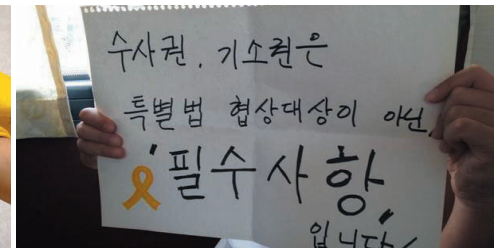 수사권, 기소권은
특별법 협상대상이 아닌,
"필수사항"
입니다!